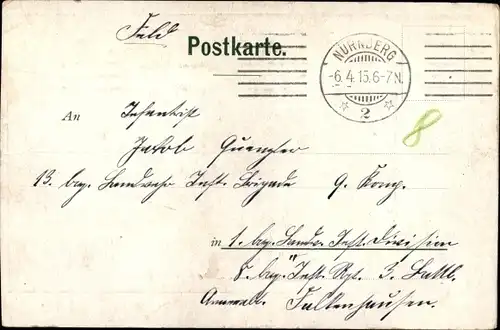 Feld
Postkarte.
NÜRNBERG
-6.4.15.6-7N.
2
8
An Infanterist
Jakob
13. bay. Landwehr Inft. Brigade 9. Komp.
in 1. bay. Landw. Inft. Division
8. bay. Inft. Rgt. 3. Battl.
Falkenhausen.